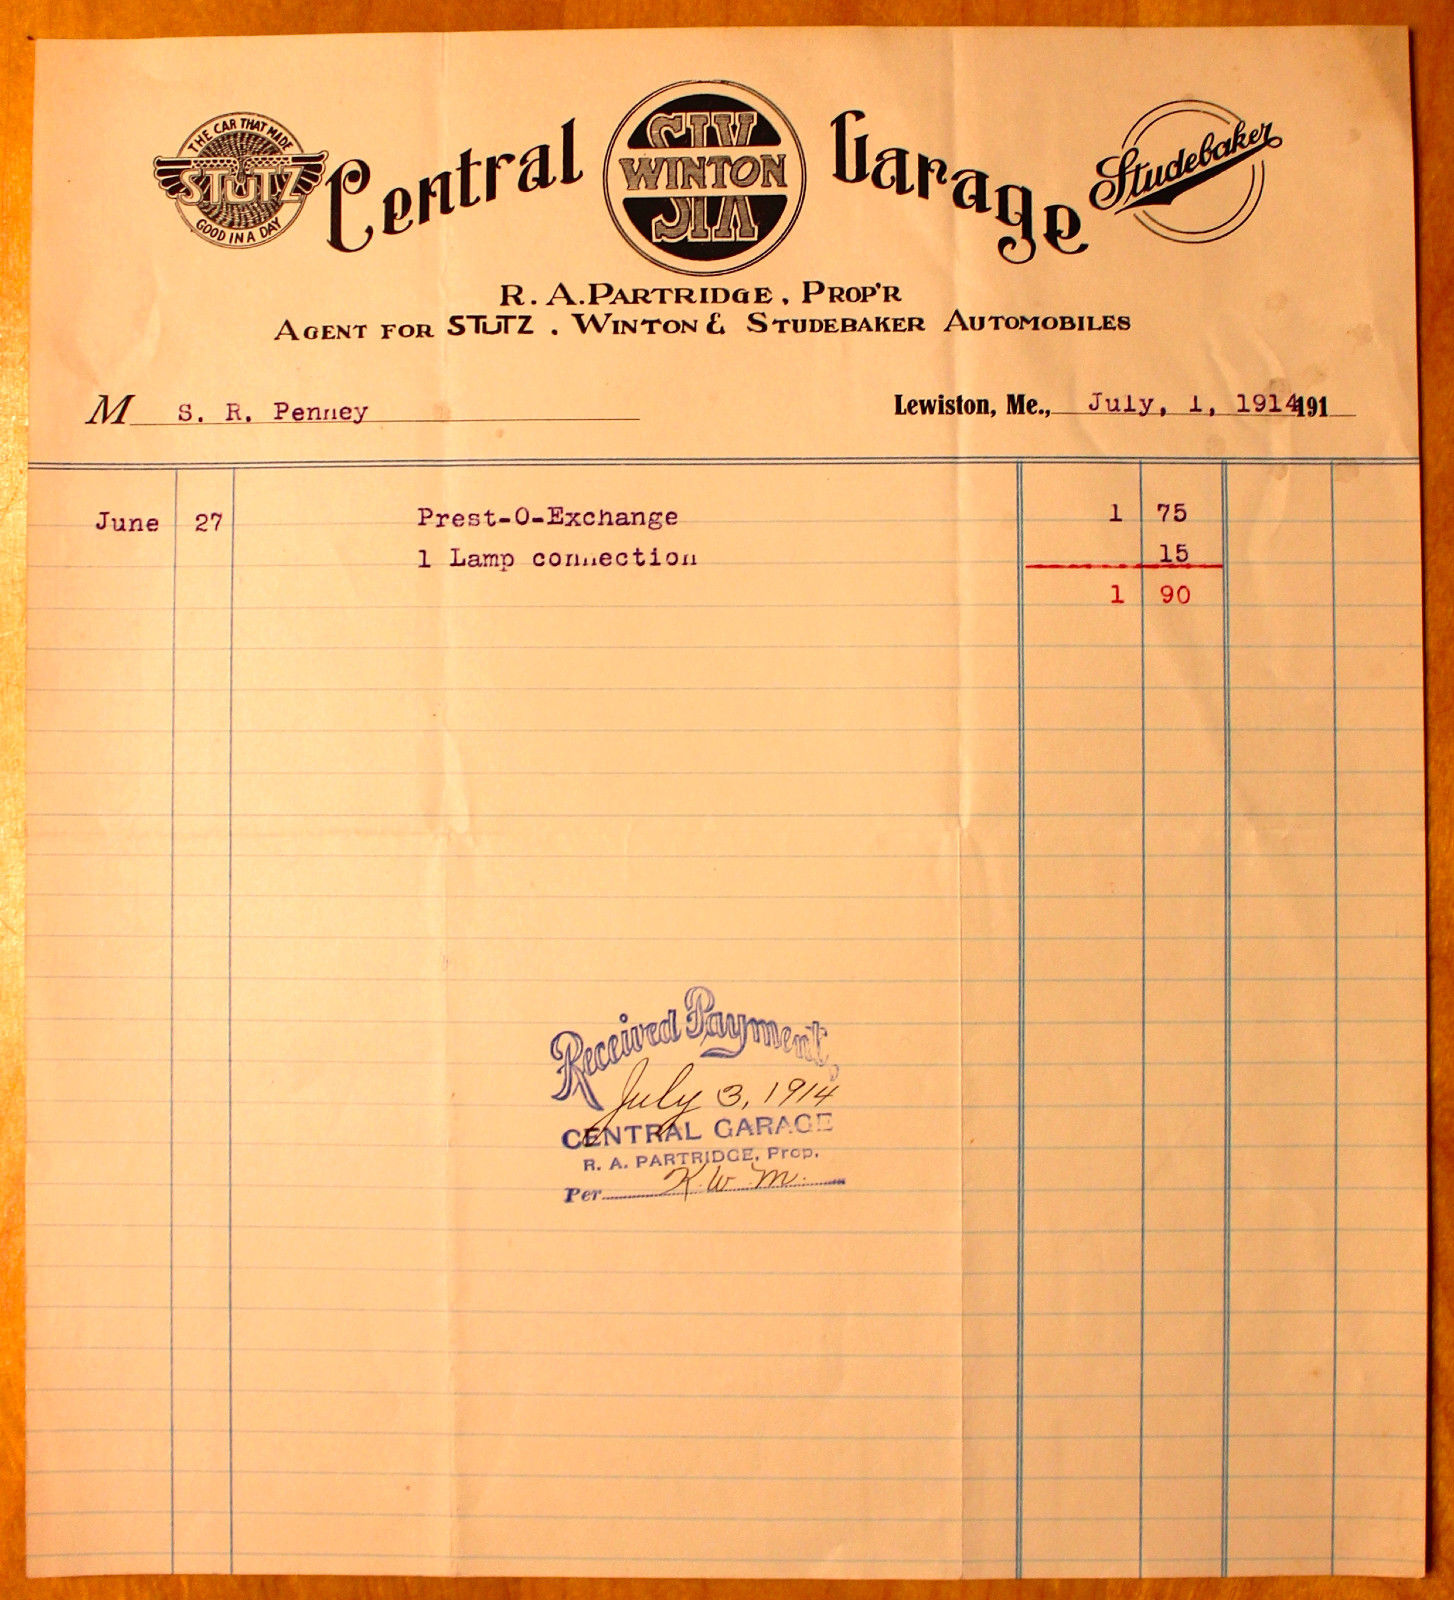 THE CAR THAT MADE
STUTZ
GOOD IN A DAY
Central Garage
SIX
WINTON
SIX
Studebaker
R. A. PARTRIDGE, PROP'R
AGENT FOR STUTZ. WINTON & STUDEBAKER AUTOMOBILES
M S. R. Penney Lewiston, Me., July, 1, 1914 191
June 27 Prest-O-Exchange 1 75
1 Lamp connection 15
1 90
Received Payment,
July 3, 1914
CENTRAL GARAGE
R. A. PARTRIDGE, Prop.
Per K. W. M.